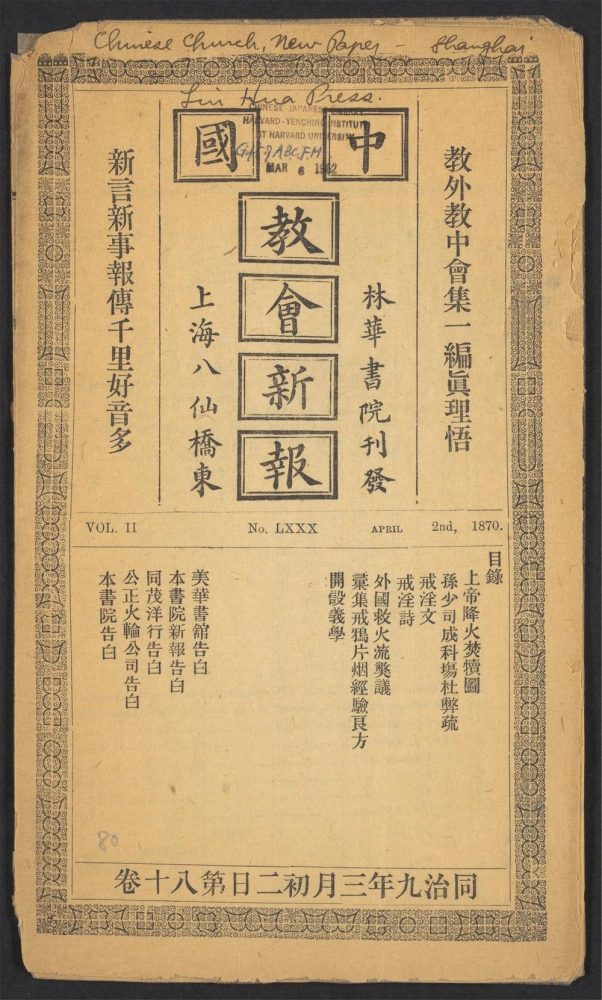 Chinese Church, New Paper - Shanghai
Lin Hua Press.
CHINESE-JAPANESE
HARVARD-YENCHING INSTITUTE
AT HARVARD UNIVERSITY
Gift of ABCFM
MAR 6 1962
中國
教會新報
教外教中會集一編眞理悟
林華書院刊發
上海八仙橋東
新言新事報傳千里好音多
VOL. II
No. LXXX
APRIL 2nd, 1870.
目錄
上帝降火焚犢圖
孫少司成科塲杜弊疏
戒淫文
戒淫詩
外國救火流獘議
彚集戒鴉片烟經驗良方
開設義學
美華書舘告白
本書院新報告白
同茂洋行告白
公正火輪公司告白
本書院告白
80
同治九年三月初二日第八十卷